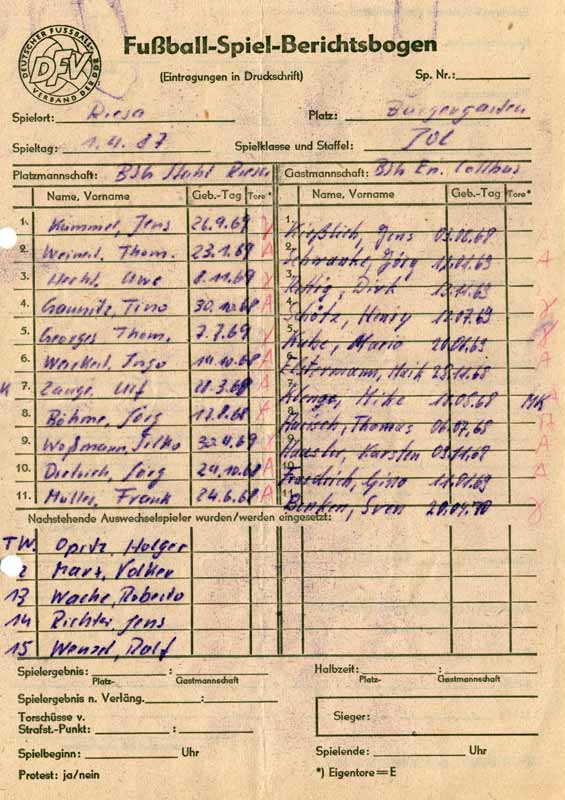 DEUTSCHER FUSSBALL-VERBAND DER DDR
DFV
Fußball-Spiel-Berichtsbogen
(Eintragungen in Druckschrift) Sp. Nr.:
Spielort: Riesa Platz: Bürgergarten
Spieltag: 1.4.87 Spielklasse und Staffel:
Platzmannschaft: BSG Stahl Riesa Gastmannschaft: BSG En. Cottbus
Name, Vorname Geb.-Tag Tore* Name, Vorname Geb.-Tag Tore*
1. Kümmel, Jens 26.9.69 1. Kießlich, Jens
2. Weinert, Thom. 23.1.69 A 2. Jörg A
3. Hecht, Uwe 8.11.69 3. Rettig, Dirk
4. Gaunitz, Tino 30.10.68 A 4. Schötz, Henry 12.07.69
5. Georges Thom. 7.7.69 5. Kube, Mario 20.06.69
6. Ingo 14.10.68 A 6. Elstermann, Maik A
K 7. Zange, Ulf A 7. Klenge, Mike 18.05.68 MK
8. Böhme, Jörg 8. Thomas 06.07.68
9. Woßmann, Silko 30.4.69 9. Häusler, Karsten 09.11.69
10. Dietrich, Jörg 29.10.68 A 10. Friedrich, Gino 11.01.69
11. Müller, Frank 24.6.68 A 11. Benken, Sven 20.04.70
Nachstehende Auswechselspieler wurden/werden eingesetzt:
TW. Opitz, Holger
2 Marx, Volker
13 Wache, Roberto
14 Richter Jens
15 Wenzel, Ralf
Spielergebnis: : Halbzeit: :
Platz- Gastmannschaft Platz- Gastmannschaft
Spielergebnis n. Verläng. :
Torschüsse v.
Strafst.-Punkt: : Sieger:
Spielbeginn: Uhr Spielende: Uhr
Protest: ja/nein *) Eigentore=E